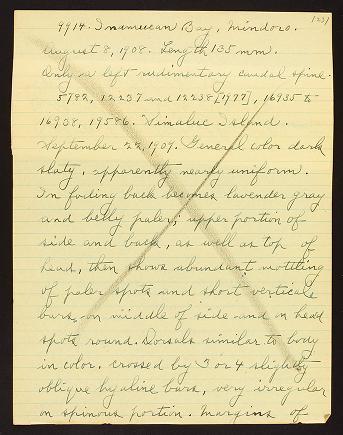 123
9914. Inamucan Bay, Mindoro.
August 8, 1908. Length 135 mm.
Only a left rudimentary caudal spine.
5782, 12237 and 12238 [1977], 16935 to
16938, 19586. Simaluc Island.
September 22, 1909. General color dark
slaty, apparently nearly uniform.
In fading back becomes lavender gray
and belly paler; upper portion of
side and back, as well as top of
head, then shows abundant mottling
of paler spots and short vertical
bars, on middle of side and on head
spots round. Dorsals similar to body
in color, crossed by 3 or 4 slightly
oblique hyaline bars, very irregular
on spinous portion. Margins of